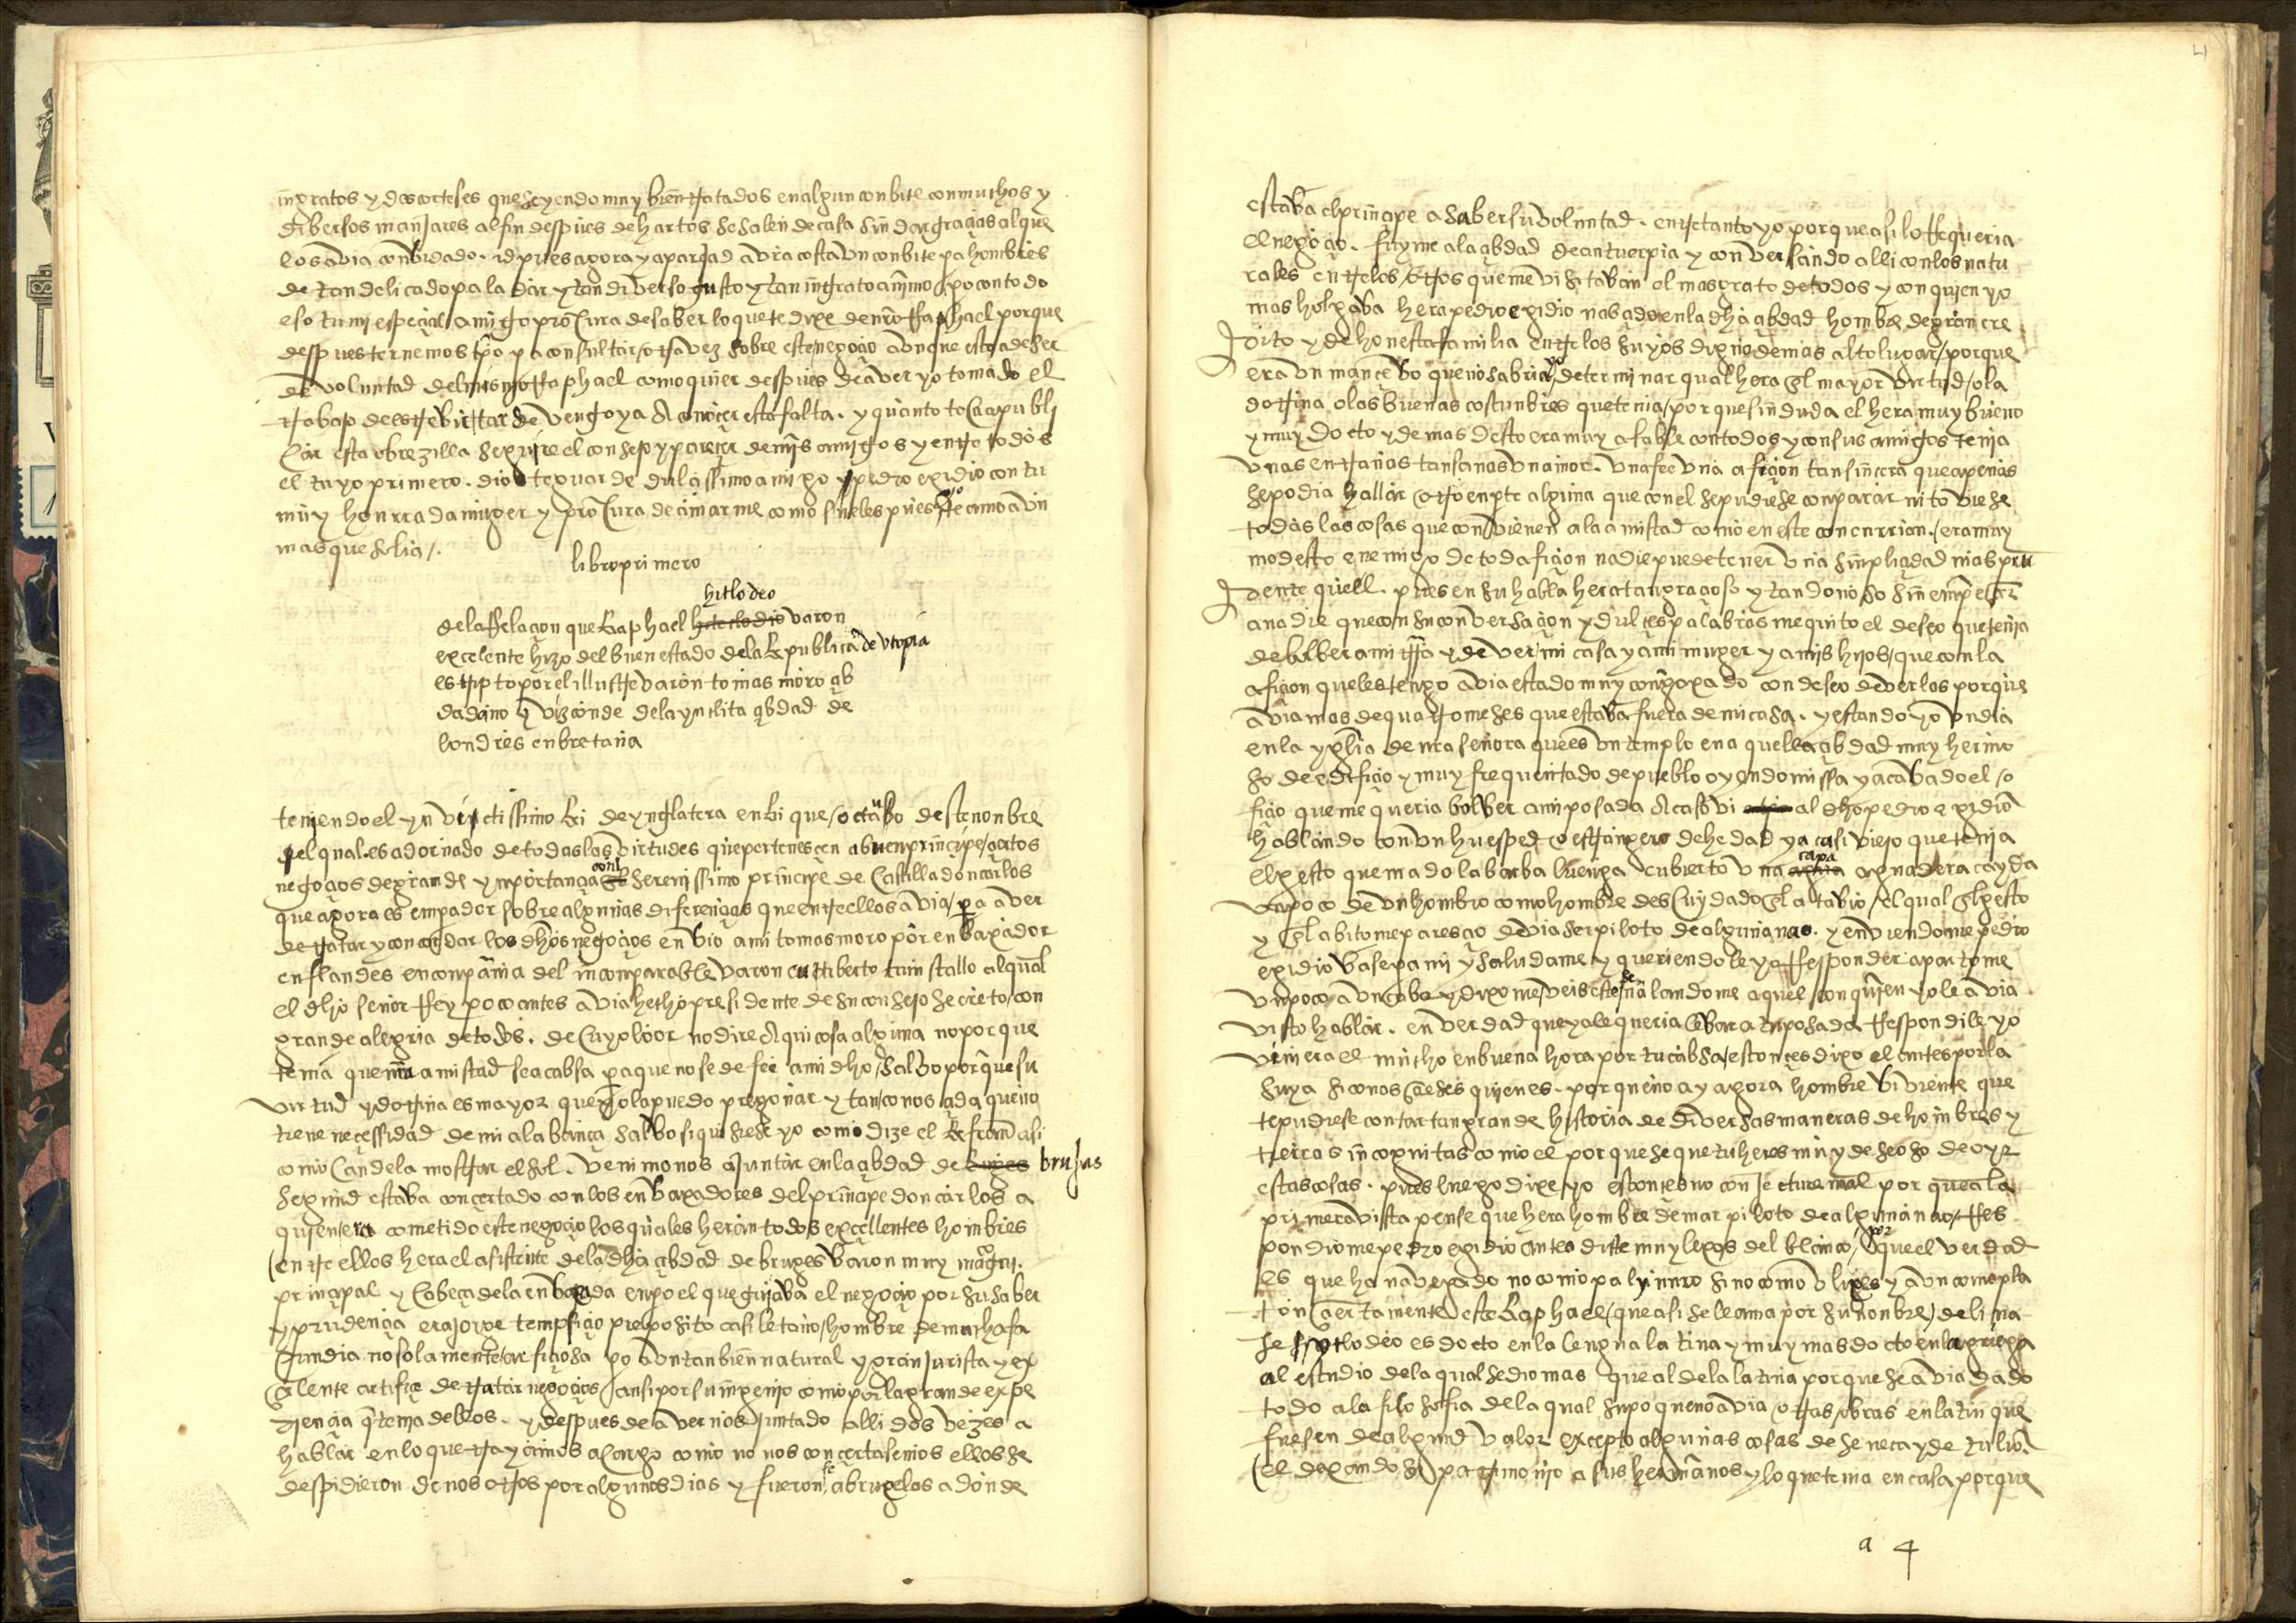 ingratos y descorteses que seyendo muy bien tratados en algun conbite con muchos y
dibersos manjares al fin despues de hartos se salen de casa sin dar graçias al que
los avia convidado. id pues agora y aparejad a vra costa un conbite pa hombres
de tan delicado paladar y tan diverso gusto y tan ingrato animo po con todo
eso tu mi espeçial amigo procura de saber lo que te dixe de nro rraphael porque
despues ternemos tpo pa consultar otra vez sobre este negoçio aunque esto a de ser
de voluntad del mismo rraphael como quier despues de aver yo tomado el
trabajo de escrebir tarde vengo ya a conoçer esta falta. y quanto toca a publi
car esta obrezilla seguire el consejo y pareçer de mis amigos y entre todos
el tuyo primero. dios te guarde dulçissimo amigo pedro egidio con tu
muy honrrada muger y procura de amarme como sueles pues yo te amo aun
mas que solia /.
libro primero
hitlodeo
de la rrelaçion que Raphael varon
excelente hizo del buen estado de la Republica de utopia
escripto por el illustre varon tomas moro çib
dadano y vizconde de la ynclita çibdad de
londres en bretaña
teniendo el ynvictissimo Rei de ynglatera enRique octabo deste nonbre
el qual es adornado de todas las virtudes que pertenesçen a buen prinçipe / çiertos
negoçios de grande ymportançia con el serenissimo prinçipe de Castilla don carlos
que agora es enpador sobre algunas diferençias que entre ellos avia / pa aver
de tratar y concordar los dhos negoçios enbio a mi tomas moro por enbaxador
en flandes en conpañia del inconparable varon cutberto tunstallo al qual
el dho señor rrey poco antes avia hecho presidente de su consejo secreto / con
grande alegria de todos. de Cuyo loor no dire aqui cosa alguna no porque
tema que nra amistad sea cabsa pa que no se de fee a mi dho / salvo porque su
virtud y dotrina es mayor que yo la puedo pregonar y tan conosçida que no
tiene necessidad de mi alabança salvo si quisiese yo como dize el Refran casi
como Candela mostrar el sol. venimonos a juntar en la çibdad de brujas
segund estava conçertado con los enbaxadores del prinçipe don carlos a
quien era cometido este negoçio los quales heran todos exçellentes honbres
(entre ellos hera el asistente de la dha çibdad de bruges varon muy magco.
prinçipal y Cabeça de la enbaxada enpo el que guiava el negoçio por su saber
y prudençia era jorge tempsiçio preposito casiletano / hombre de mucha fa
cundia no solamente artifiçiosa po aun tanbien natural y gran jurista y ex
çelente artifiçe de tratar negoçios / ansi por su ingenio como por la grande expe
riençia q tenia dellos. y despues de avernos juntado alli dos vezes a
hablar en lo que trayamos a cargo como no nos conçertasemos ellos se
despidieron de nosotros por algunos dias y fueronse a bruxelas a donde
estava el prinçipe a saber su voluntad. entretanto yo porque asi lo rrequeria
el negoçio. fuyme a la çibdad de antuerpia y conversando alli con los natu
rales entre los otros que me visitavan el mas grato de todos y con quien yo
mas holgava hera pedro egidio nasçido en la dha çibdad hombre de gran cre
dito y de honesta familia entre los suyos digno de mas alto lugar / porque
era un mançebo que no sabria yo determinar qual hera en el mayor virtud / o la
dotrina o las buenas costunbres que tenia / porque sin duda el hera muy bueno
y muy docto y demas desto era muy afable con todos y con sus amigos tenia
unas entrañas tan sanas un amor. una fee una afiçion tan sinçera que apenas
se podia hallar otro en pte alguna que con el se pudiese conparar ni toviese
todas las cosas que convienen a la amistad como en este concurrian. / era muy
modesto enemigo de toda fiçion nadie puede tener una simpliçidad mas pru
dente quell. pues en su habla hera tan graçioso y tan donoso sin empeçer
a nadie que con su conversaçion y dulçes palabras me quito el deseo que tenia
de bolver a mi trra y de ver mi casa y a mi muger y a mis hijos / que con la
afiçion que les tengo avia estado muy congoxado con deseo de verlos porque
avia mas de quatro meses que estava fuera de mi casa. y estando yo un dia
en la yglia de nra señora que es un templo en aquella çibdad muy hermo
so de edifiçio y muy frequentado de pueblo oyendo missa y acavado el o
fiçio que me queria bolver a mi posada Acaso vi al dho pedro egidio
hablando con un huesped o estrangero de hedad ya casi viejo que tenia
el gesto quemado la barba luenga cubierto una capa aguadera cayda
un poco de un hombro como hombre desCuydado en el atavio / el qual en el gesto
y en el abito me paresçio devia ser piloto de alguna nao. y en viendome pedro
egidio vase pa mi y saludame y queriendole yo rresponder apartome
un poco a un cabo y dixome / veis este señalandome aquel con quien yo le avia
visto hablar. en verdad que ya le queria llevar a tu posada. Respondile yo
viniera el mucho en buena hora por tu cabsa / estonçes dixo el antes por la
suya si conosçieses quien es. porque no ay agora hombre viviente que
te pudiese contar tan grande historia de diversas maneras de hombres y
tierras incognitas como el porque se que tu heres muy deseoso de oyr
estas cosas. pues luego dixe yo estonçes no conjecture mal por que a la
primera vista pense que hera hombre de mar piloto de alguna nao / rres
pondiome pedro egidio antes diste muy lexos del blanco / por que el verdad
es que ha navegado no como palynuro sino como ulixes y aun como pla
ton çiertamente este Raphael (que asi se llama por su nonbre) de lina
je hytlodeo es docto en la lengua latina y muy mas docto en la griega
al estudio de la qual se dio mas que al de la latina porque se avia dado
todo a la filosofia de la qual supo que no avia otras obras en latin que
fuesen de algund valor excepto algunas cosas de seneca y de tulio.
(el dexando su patrimonio a sus hermanos y lo que tenia en casa porque
a 4